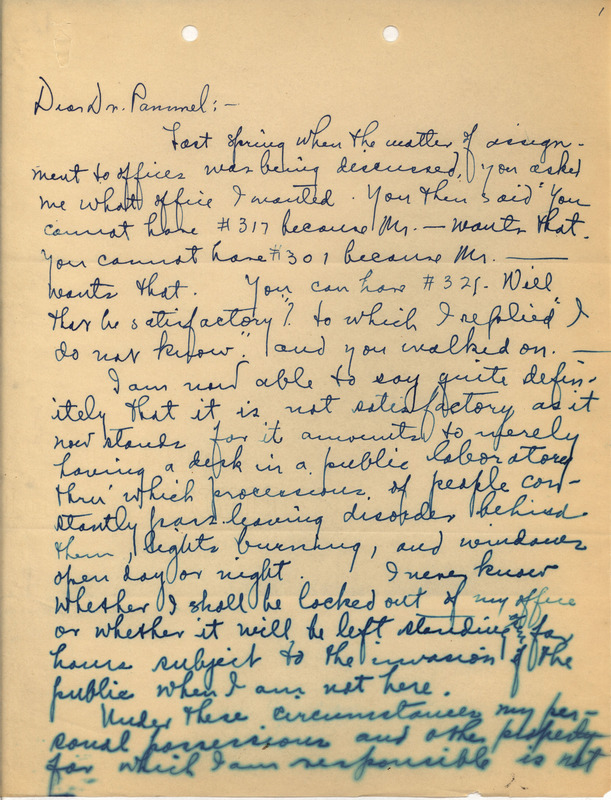 1
Dear Dr. Pammel:—
Last spring when the matter of assign-
ment to offices was being discussed, you asked
me what office I wanted. You then said "You
cannot have #317 because Mr. — wants that.
You cannot have #301 because Mr. —
wants that. You can have #325. Will
that be satisfactory"? to which I replied "I
do not know". and you walked on. —
I am now able to say quite defin-
itely that it is not satisfactory as it
now stands for it amounts to merely
having a desk in a public laboratory
thru' which processions of people con-
stantly pass leaving disorder behind
them, lights burning, and windows
open day or night. I never know
whether I shall be locked out of my office
or whether it will be left standing for
hours subject to the invasion of the
public when I am not here.
Under these circumstances my per-
sonal possessions and other property
for which I am responsible is not